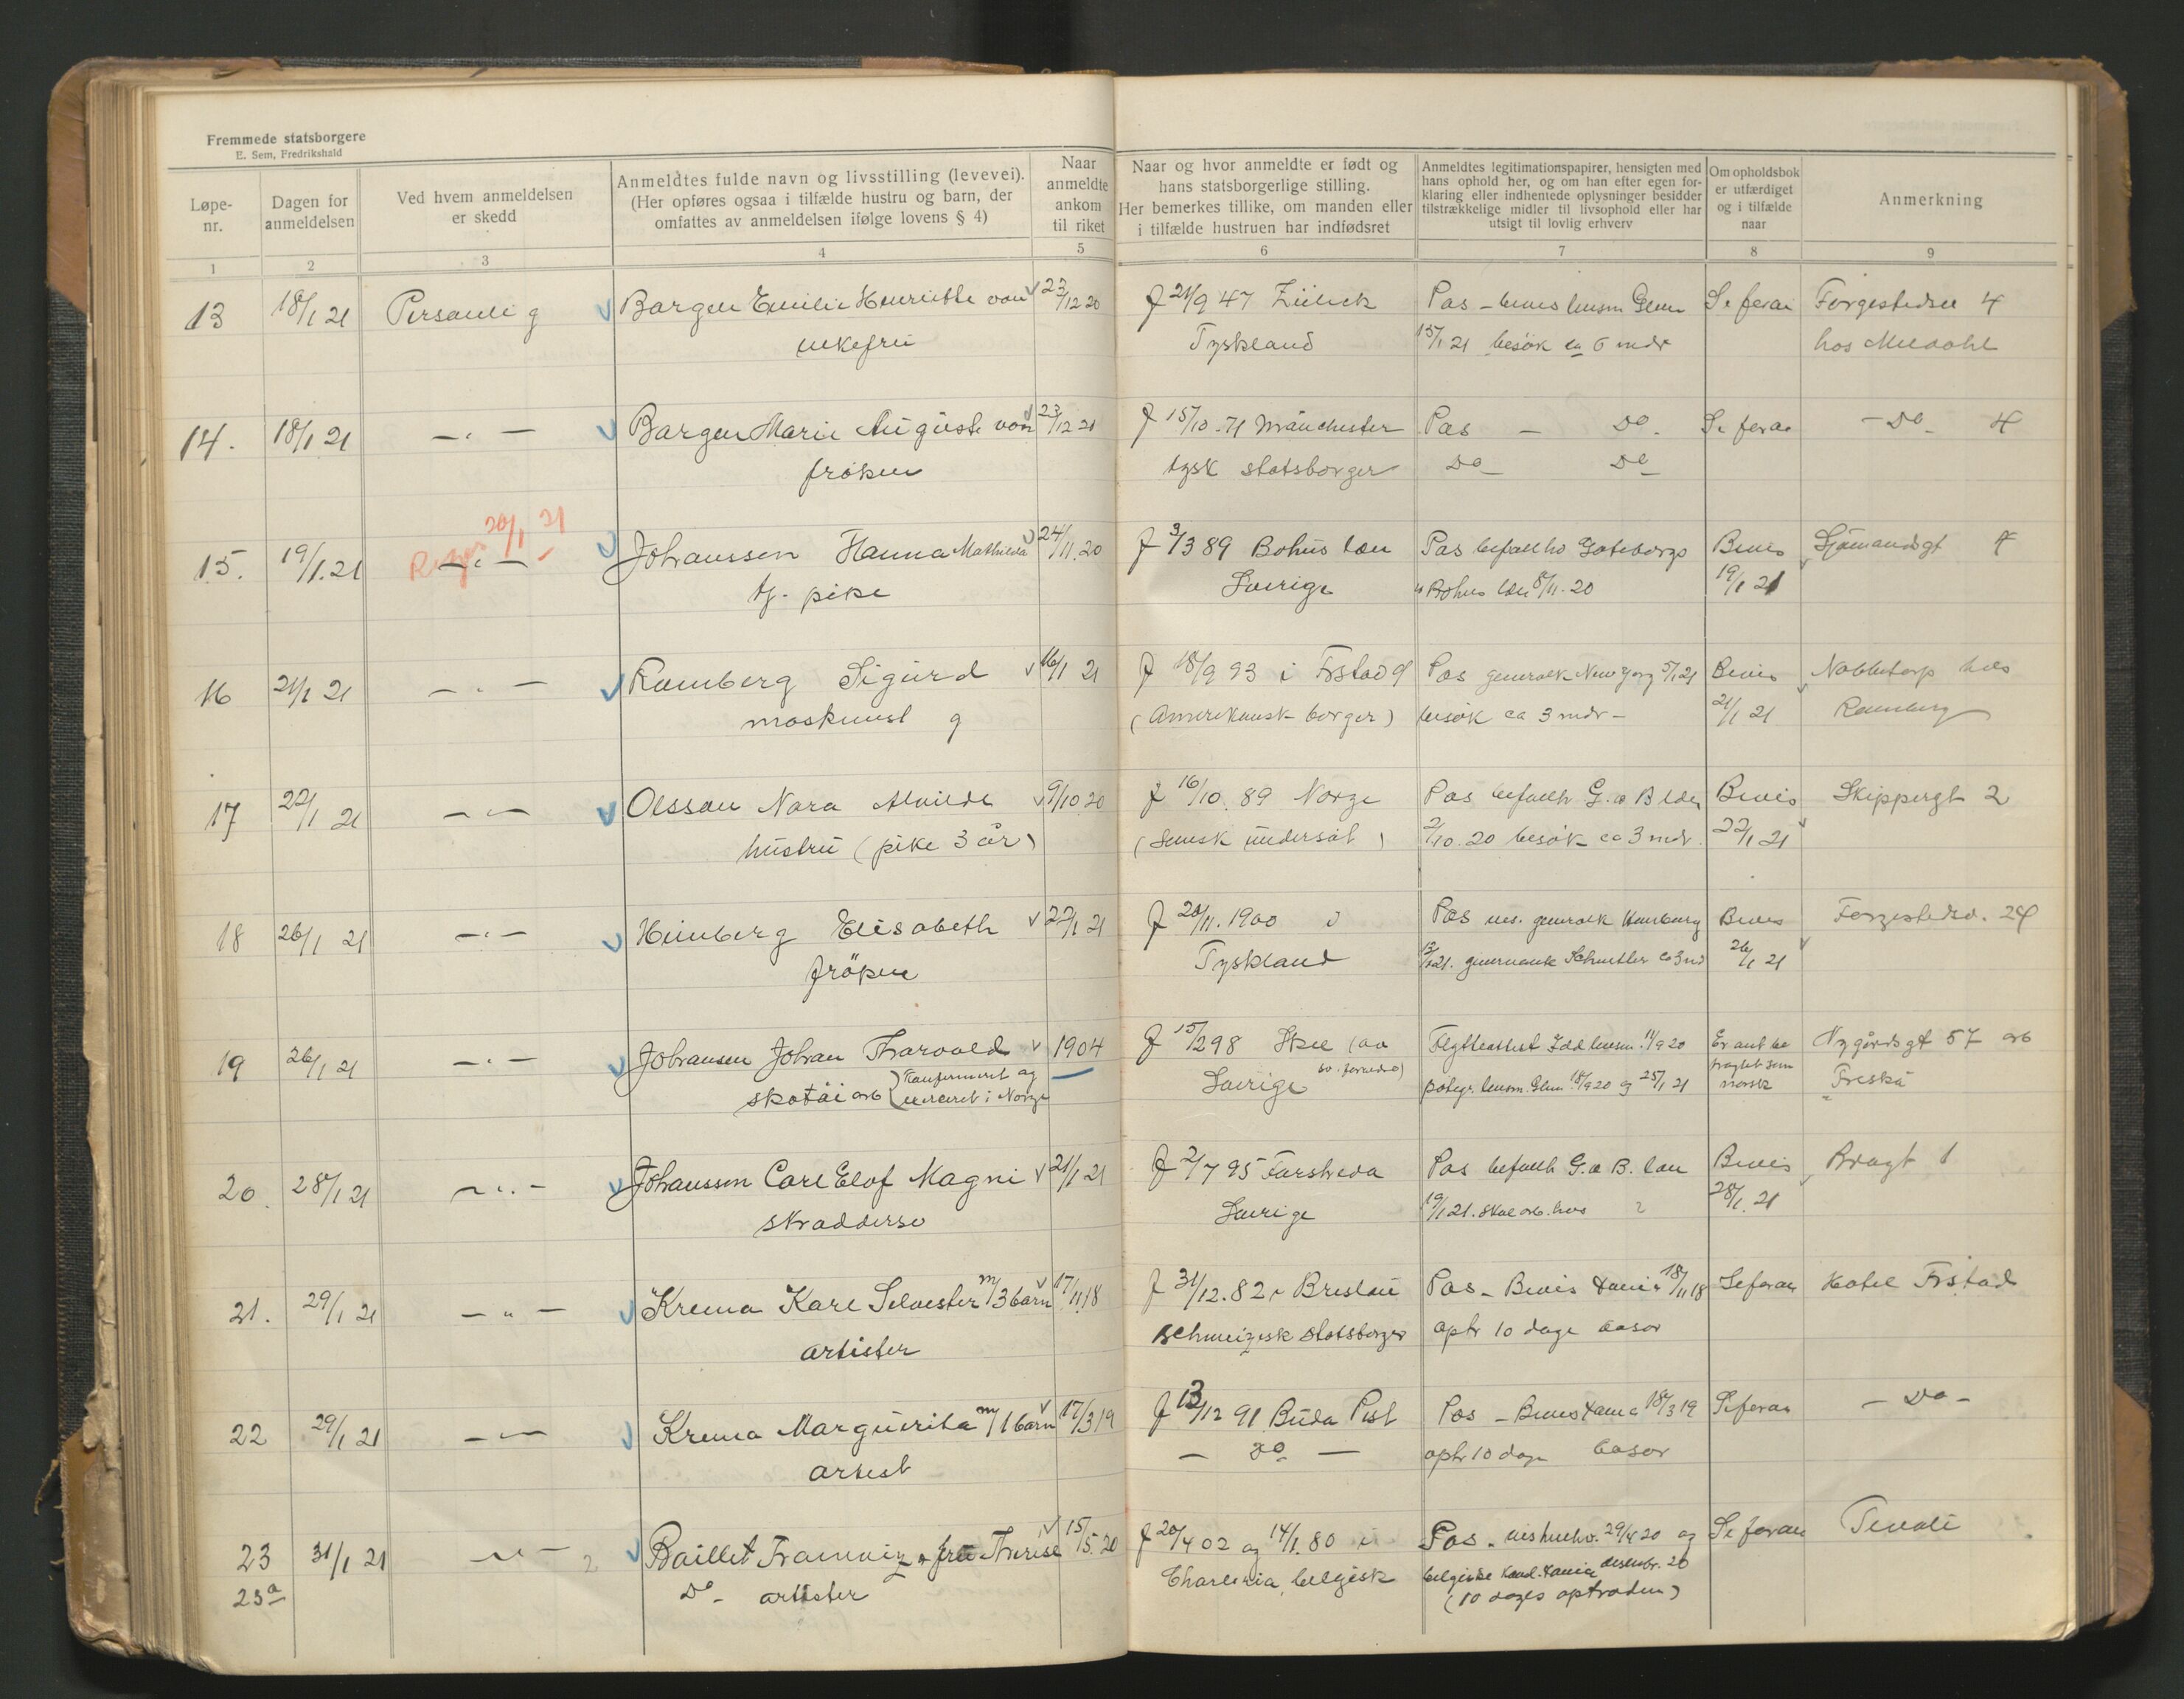 Fremmede statsborgere
E. Sem, Fredrikshald
Løpe-nr.
Dagen for anmeldelsen
Ved hvem anmeldelsen er skedd
Anmeldtes fulde navn og livsstilling (levevei).
(Her opføres ogsaa i tilfælde hustru og barn, der
omfattes av anmeldelsen ifølge lovens § 4)
Naar anmeldte ankom til riket
Naar og hvor anmeldte er født og
hans statsborgerlige stilling.
Her bemerkes tillike, om manden eller
i tilfælde hustruen har indfødsret
Anmeldtes legitimationspapirer, hensigten med
hans ophold her, og om han efter egen for-
klaring eller indhentede oplysninger besidder
tilstrækkelige midler til livsophold eller har
utsigt til lovlig erhverv
Om opholdsbok er utfærdiget og i tilfælde naar
Anmerkning
1 2 3 4 5 6 7 8 9
13 18/1 21 Personlig Bargen Emilie Henriette von 23/12 20 f 21/9 47 Pas - bevis lensm Glem Se foran Forgestedsv 4
enkefru Tyskland 15/1 21 besøk ca 6 mdr hos
14. 18/1 21 - " - Bargen Marie Auguste von 23/12 21 f 15/10 71 Manchester Pas - Do - Se foran - Do - 4
frøken tysk statsborger Do - Do
20/1 21
15. 19/1 21 - " - Johanssen Hanna Mathilda 24/11.20 f 3/3 89 Bohus len Pas befallh Goteborgs Bevis Sjømandsgt 7
tj. pike Sverige " Bohus len 8/11-20 19/1 21
16 21/1 21 - " - Ramberg Sigurd 16/1 21 f 18/9 93 i Frstad Pas generalk New York 5/1 21 Bevis Nabbetorp hos
maskinist (Amerikansk borger) besøk ca 3 mdr - 21/1 21 Ramberg
17 22/1 21 - " - Olsson Nora Alvilde 9/10 20 f 16/10. 89 Norge Pas befallh G. o B len Bevis Skippergt 2
hustru (pike 3 år) (svensk undersåt) 2/10.20 besøk ca 3 mdr. 22/1 21
18 26/1 21 - " - Heimberg Elisabeth 22/1 21 f 20/11.1900 i Pas generalk Hamburg Bevis Forgestedsv. 24
frøken Tyskland 26/1 21
19 26/1 21 - " - Johansen Johan Thorvald 1904 f 15/2 98 Skee Flytteattest Idd lensm. 11/9 20 Er ant be Nygårdsgt 57 arb
skotøi arb (Konfirmeret og i Norge Sverige lensm. Glem 18/9 20 og 25/1 21 norsk
20. 28/1 21 - " - Johanssen Carl Elof Magni 21/1 21 f 2/7 95 Forsheda Pas befallh G. o B. len Bevis Brogt 1
skræddersv Sverige 19/1 21. skal arb. hos 28/1 21
21. 29/1 21 - " - Krema Karl Selvester m/3 barn 17/11 18 f 31/12.82 i Breslau Pas - Bevis Kania 18/11 18 Se foran Hotel Frstad
artister schweizisk statsborger optr 10 dage basar
22 29/1 21 - " - Krema Marguerita m/1 barn 17/3 19 f 13/12 91 Buda Pest Pas - Bevis Kania 18/3 19 Se foran - Do -
artist - Do - optr 10 dage basar
23 31/1 21 - " - Baillet 15/5.20 f 20/4 02 og 14/1.80 i Pas. 29/4 20 og Se foran Tivoli
23a Do - artister belgisk belgiske Kania desembr. 20
(10 dages optræden)